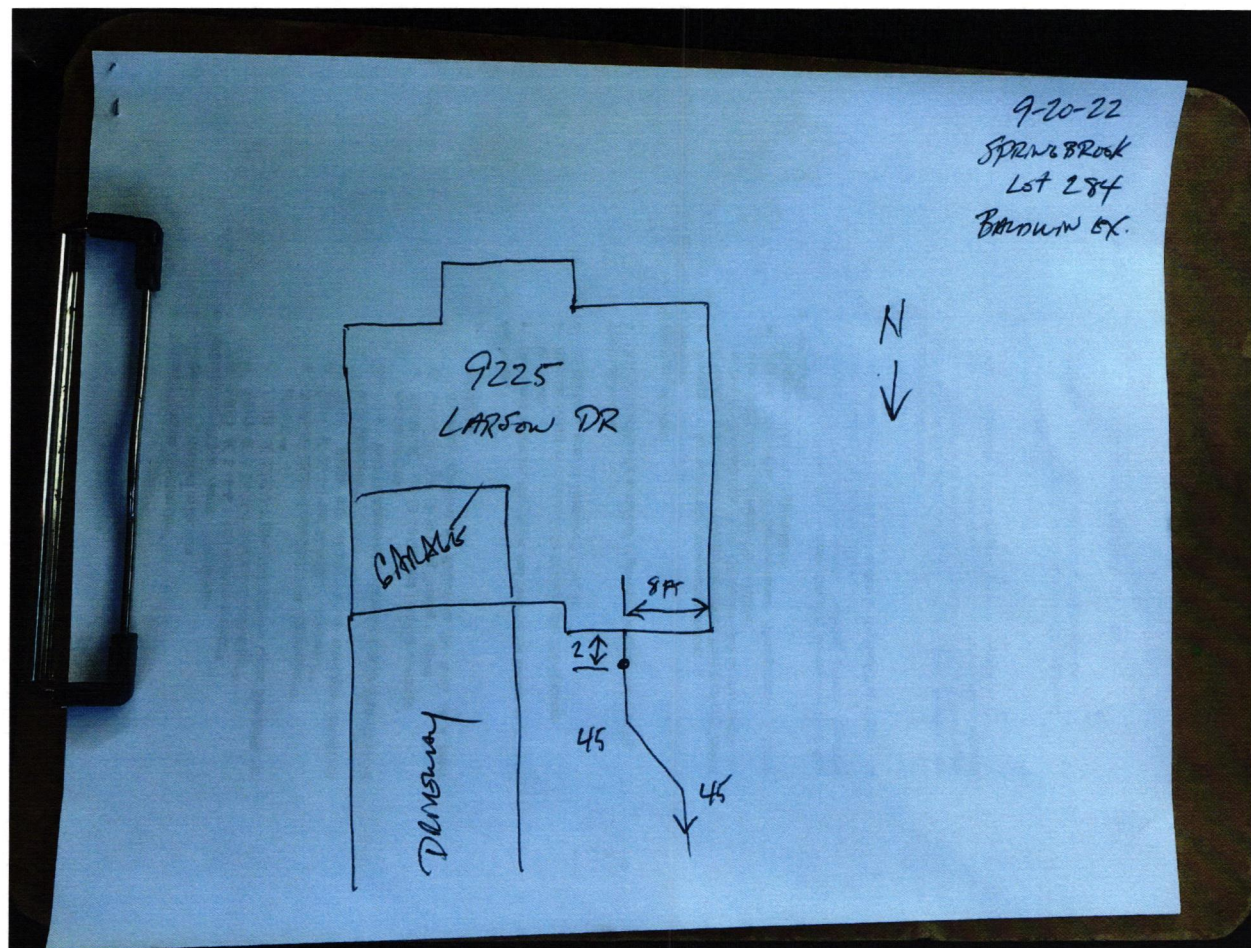 9-20-22
SPRINGBROOK
LOT 284
BALDWIN EX.
N
9225
LARSON DR
GARAGE
8 FT
2
45
45
DRIVEWAY